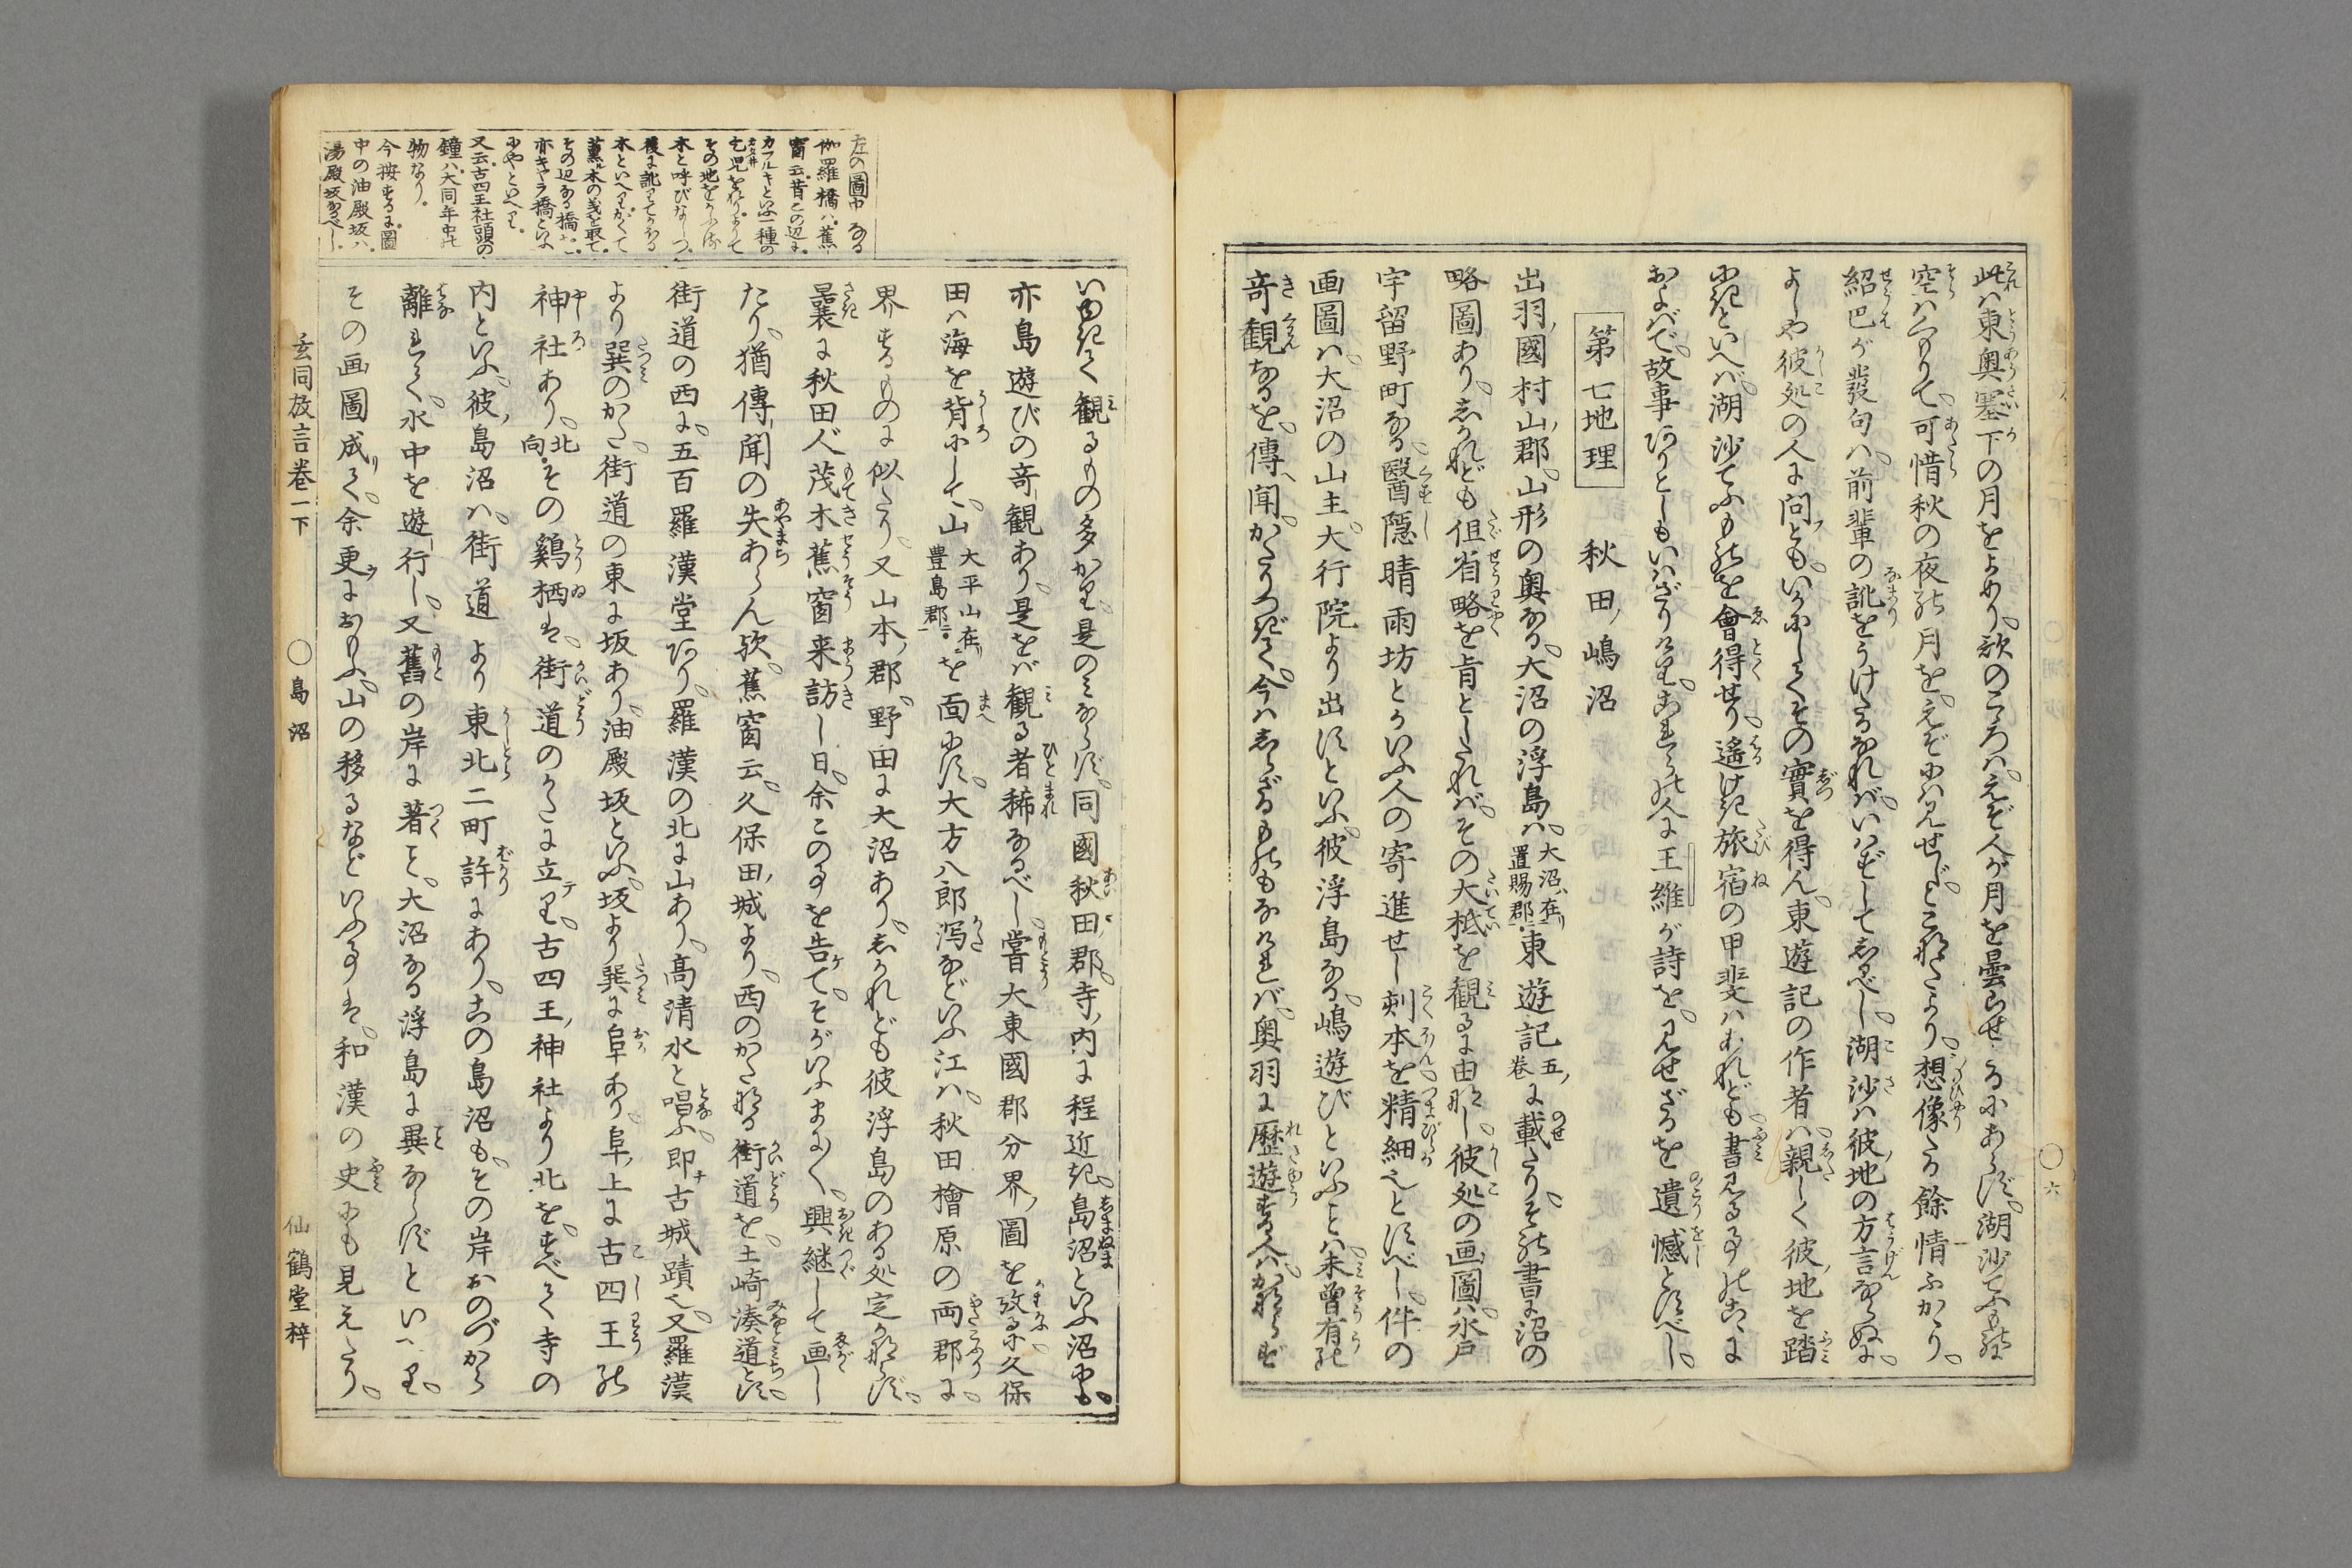 此は東奥塞下の月をよめり。歌のこゝろは。えぞ人が月を曇らせるにあらず。湖沙てふものに
空はくもりて。可惜秋の夜の月を。えぞには見せじとこそなより。想像たる餘情ふかかり。
紹巴が發句は。前輩の訛をうけたるなれば。いはずしてあるべし。湖沙は彼地の方言ならぬに。
よしや彼処の人に問とも。いかにしてその實を得ん。東遊記の作者は。親しく彼地を踏
にきといへば。湖沙てふものを會得せり。遙けき旅宿の甲斐はあれども。書見る事のこゝに
およばで。故事ありとしもいはざりけり。あはれこの人に王維が詩を。見せざるを遺憾とすべし。
第七地理 秋田嶋沼
出羽國村山郡。山形の奥なる。大沼の浮島は。大沼ハ在置賜郡東遊記五巻に載たり。その書に沼の
略図あり。しかれども但省略を旨としたれば。その大柢を観るに由なし。彼処の画圖は。水戸
宇留野町なる。醫隠晴雨坊とかいふ人の寄進せし刻本を精細也とすべし。件の
画圖は。大沼の山主。大行院より出すといふ。彼浮島なる。嶋遊びといふことは。未曾有の
竒観なるを。傳へ聞。かたりつぎて。今はしらざるものもなければ。奥羽に歴遊する人は。かならず
いゆきて観るもの多かり。是のみならず。同國秋田郡。寺内に程近き。島沼といふ沼にも。
亦島遊びの竒観あり。是をば観る者稀なるべし。嘗大東國郡分界圖を攷るに。久保
田は海を背にして。山大平山在豊島郡を面にす。大方八郎潟などいふ江は。秋田檜原の両郡に。
界するものに似たり。又山本郡。野田に大沼あり。しかれども彼浮島のある処定かならず。
曩に秋田人。茂木蕉窗来訪し日。余この事を告て。そがいふまゝに。興継して画し
たり。猶傳聞の失あらん歟。蕉窗云。久保田城より。西のかたなる街道を。土崎湊道とす。
街道の西に。五百羅漢堂あり。羅漢の北に山あり。高清水と唱ふ。即古城蹟也。又羅漢
より巽のかた。街道の東に坂あり。油殿坂といふ。坂より巽に阜あり。阜上に古四王の
神社あり。北向。その鷄栖は。街道のかたに立り。古四王神社より北を。すべて寺の
内といふ。彼島沼は。街道より東北二町許にあり。この島沼も。その岸おのづから
離れて。水中を遊行し。又舊の岸に著こと。大沼なる浮島に異ならずといへり。
その画圖成りて。余更におもふ。山の移るなどいふ事は。和漢の史にも見えたり。
左の圖中なる
伽羅橋ハ。蕉
窗云。昔この辺に。
カフルキといふ一種の
その地をかふろ
木と呼びなしつ。
後に訛りてかをる
木といへり。かくて
薫木の義を取て。
その辺なる橋を。
亦キヤラ橋といふ
にやといへり。
又云。古四王社頭の
鐘ハ。大同年中の
物なり。
今按するに。圖
中の油殿坂ハ。
湯殿坂なるべし。
玄同放言巻一下 ○島沼 仙鶴堂梓
○六